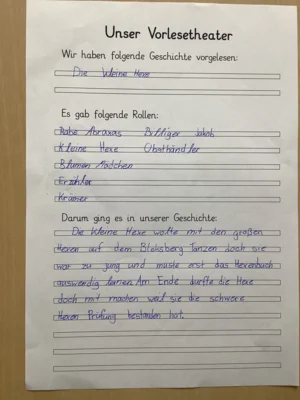 Unser Vorlesetheater
Wir haben folgende Geschichte vorgelesen:
Die kleine Hexe
Es gab folgende Rollen:
Rabe Abraxas Billiger Jakob
Kleine Hexe Obsthändler
Blumen Mädchen
Erzähler
Krämer
Darum ging es in unserer Geschichte:
Die kleine Hexe wollte mit den großen
Hexen auf dem Bloksberg Tanzen doch sie
war zu jung und muste erst das Hexenbuch
auswendig lernen. Am Ende durfte die Hexe
doch mit machen weil sie die schwere
Hexen Prüfung bestanden hat.